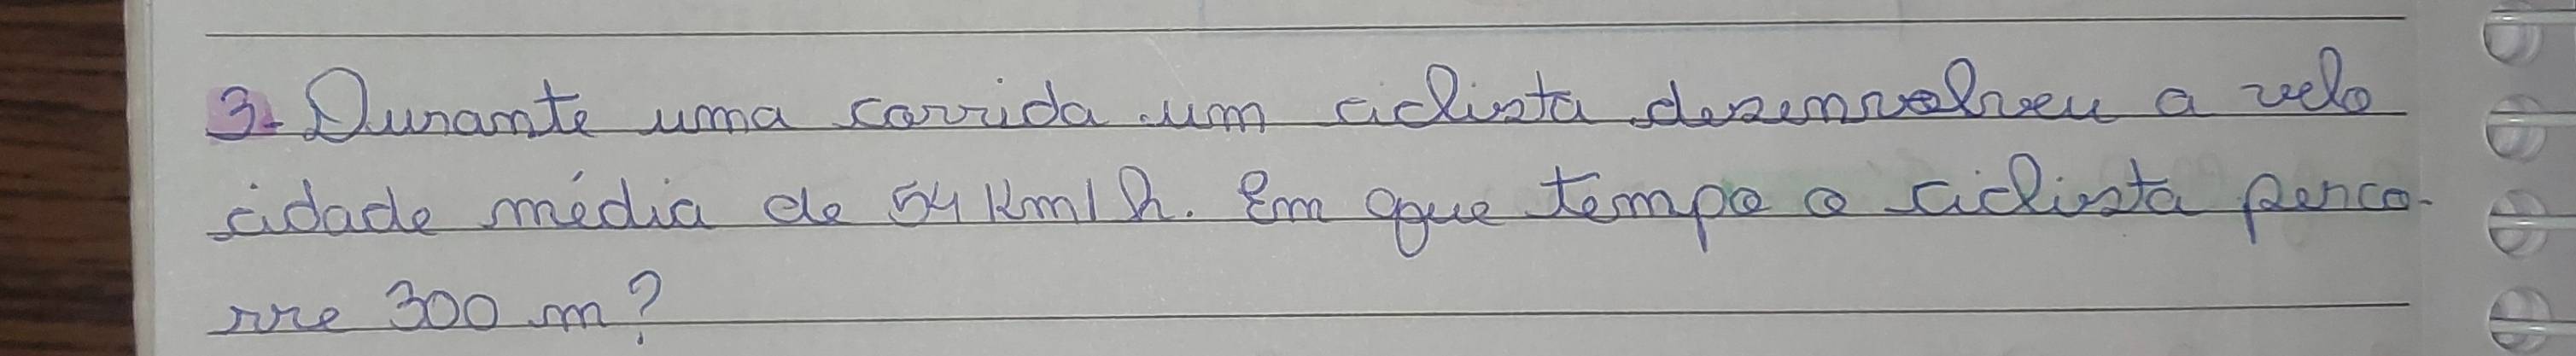 3- Durante uma corrida um ciclista desenvolveu a velo
cidade média de 54 Km/h. Em que tempo o ciclista perco-
rre 300 m?